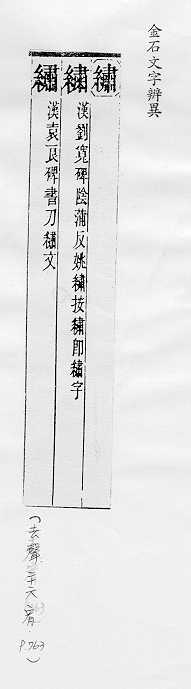 金石文字辨異
繡
繍漢劉寬碑陰蒲反姚繍按繍即繡字
繡漢袁良碑書刀繡文
(去聲.二十六宥.P.763)